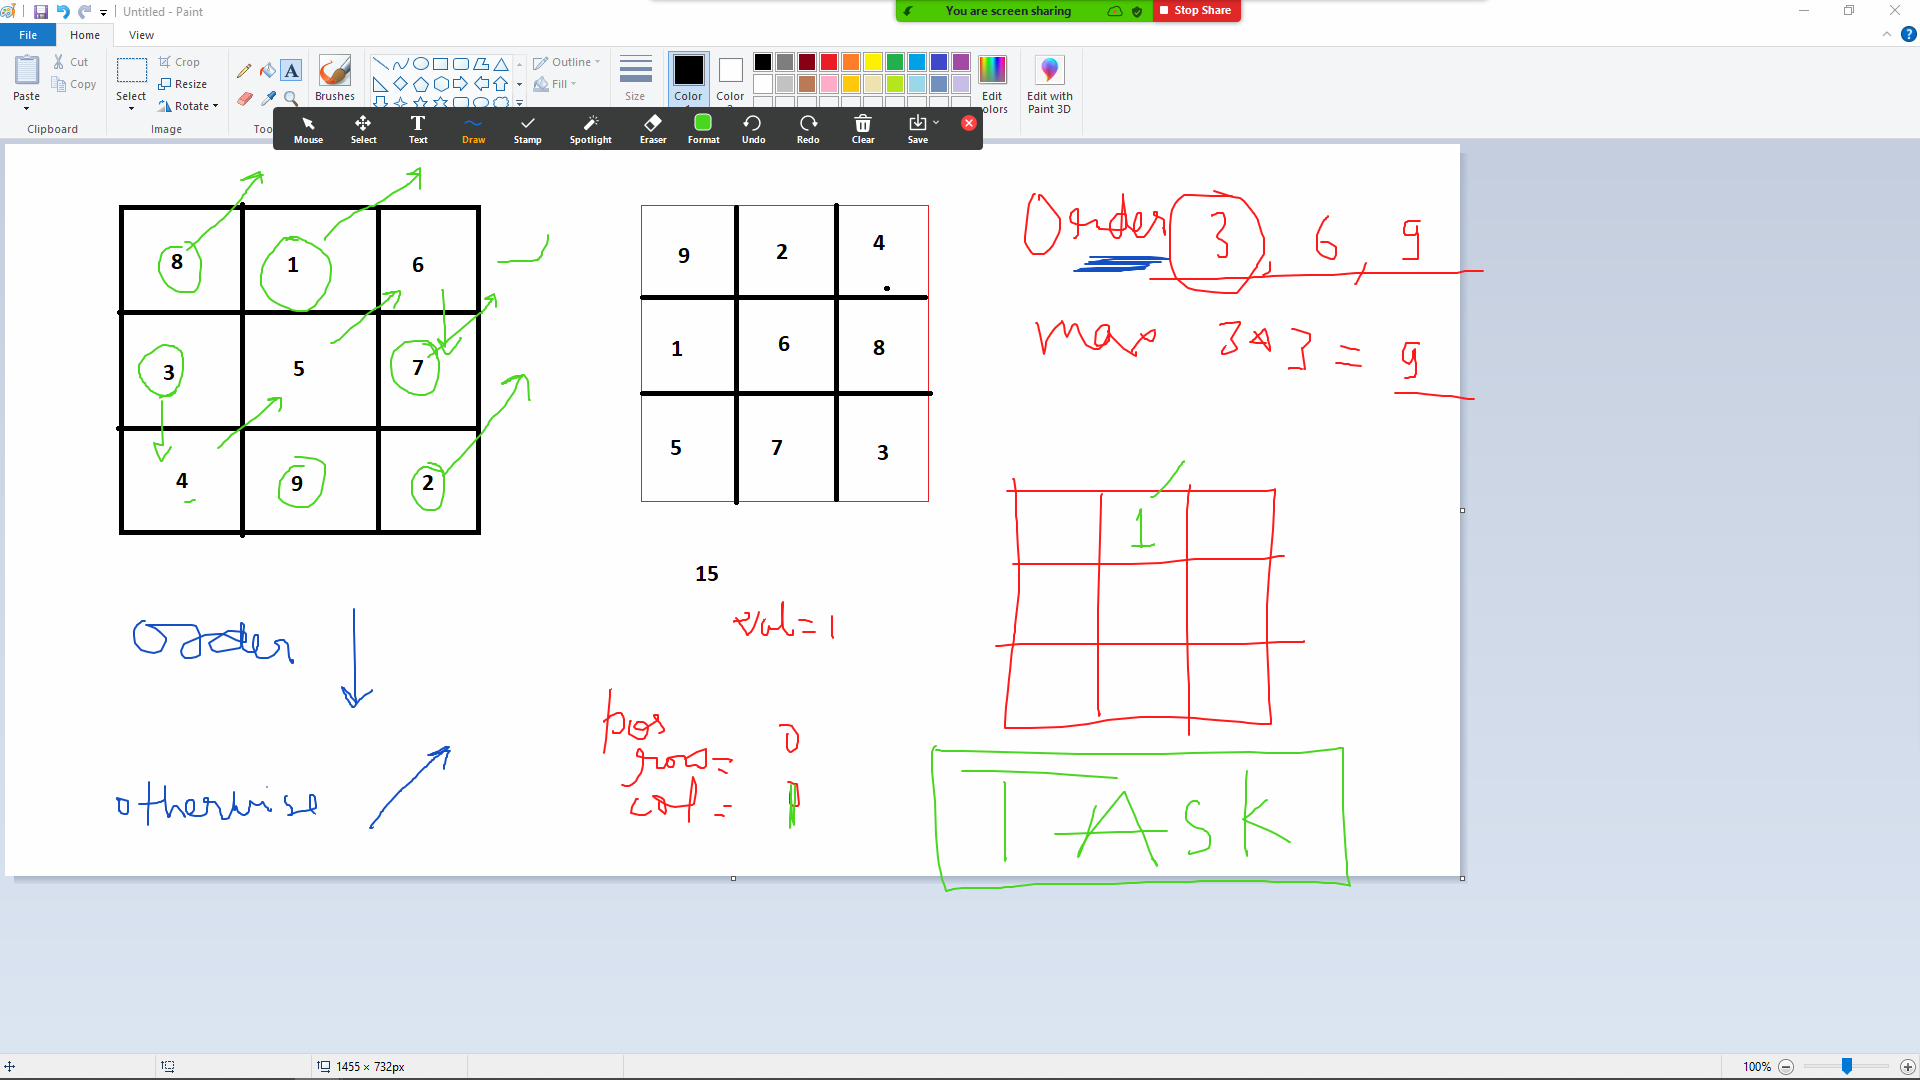 Untitled - Paint
You are screen sharing
Stop Share
File
Home
View
Paste
Cut
Copy
Clipboard
Select
Crop
Resize
Rotate
Image
A
Brushes
Outline
Fill
Size
Color
Color
Edit
Edit with
Paint 3D
Mouse
Select
T
Text
Draw
Stamp
Spotlight
Eraser
Format
Undo
Redo
Clear
Save
8 1 6
3 5 7
4 9 2
9 2 4
1 6 8
5 7 3
15
Order 3, 6, 9
max 3*3 = 9
1
val = 1
pos
row = 0
col =
order
otherwise
TASK
1455 × 732px
100%